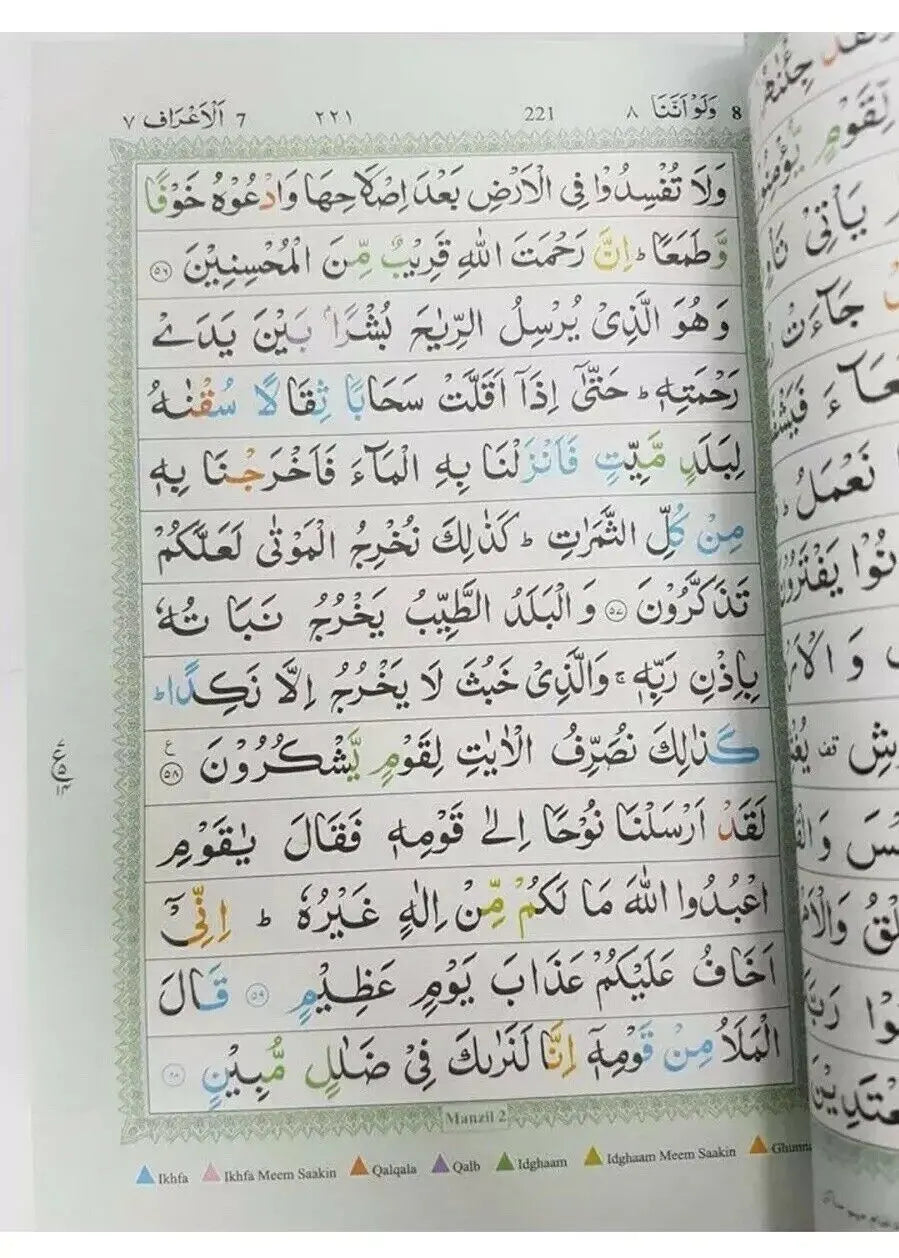 ٧ اَلْاَعْرَاف 7 ٢٢١ 221 ٨ وَلَوْ اَنَّنَا 8
وَلَا تُفْسِدُوْا فِى الْاَرْضِ بَعْدَ اِصْلَاحِهَا وَادْعُوْهُ خَوْفًا
وَّطَمَعًا ؕ اِنَّ رَحْمَتَ اللّٰهِ قَرِيْبٌ مِّنَ الْمُحْسِنِيْنَ ﴿٥٦﴾
وَهُوَ الَّذِىْ يُرْسِلُ الرِّيٰحَ بُشْرًاۢ بَيْنَ يَدَىْ
رَحْمَتِهٖ ؕ حَتّٰٓى اِذَاۤ اَقَلَّتْ سَحَابًا ثِقَالًا سُقْنٰهُ
لِبَلَدٍ مَّيِّتٍ فَاَنْزَلْنَا بِهِ الْمَآءَ فَاَخْرَجْنَا بِهٖ
مِنْ كُلِّ الثَّمَرٰتِ ؕ كَذٰلِكَ نُخْرِجُ الْمَوْتٰى لَعَلَّكُمْ
تَذَكَّرُوْنَ ﴿٥٧﴾ وَالْبَلَدُ الطَّيِّبُ يَخْرُجُ نَبَاتُهٗ
بِاِذْنِ رَبِّهٖ ۚ وَالَّذِىْ خَبُثَ لَا يَخْرُجُ اِلَّا نَكِدًا ؕ
كَذٰلِكَ نُصَرِّفُ الْاٰيٰتِ لِقَوْمٍ يَّشْكُرُوْنَ ﴿٥٨﴾ ع
لَقَدْ اَرْسَلْنَا نُوْحًا اِلٰى قَوْمِهٖ فَقَالَ يٰقَوْمِ
اعْبُدُوا اللّٰهَ مَا لَكُمْ مِّنْ اِلٰهٍ غَيْرُهٗ ؕ اِنِّىْۤ
اَخَافُ عَلَيْكُمْ عَذَابَ يَوْمٍ عَظِيْمٍ ﴿٥٩﴾ قَالَ
الْمَلَاُ مِنْ قَوْمِهٖۤ اِنَّا لَنَرٰىكَ فِىْ ضَلٰلٍ مُّبِيْنٍ ﴿٦٠﴾
Manzil 2
Ikhfa Ikhfa Meem Saakin Qalqala Qalb Idghaam Idghaam Meem Saakin
لِقَوْمٍ يُّؤْمِنُوْ
يَاْتِىْ
جَآءَتْ
نَعْمَلُ ؕ
نُوْا يَفْتَرُوْنَ